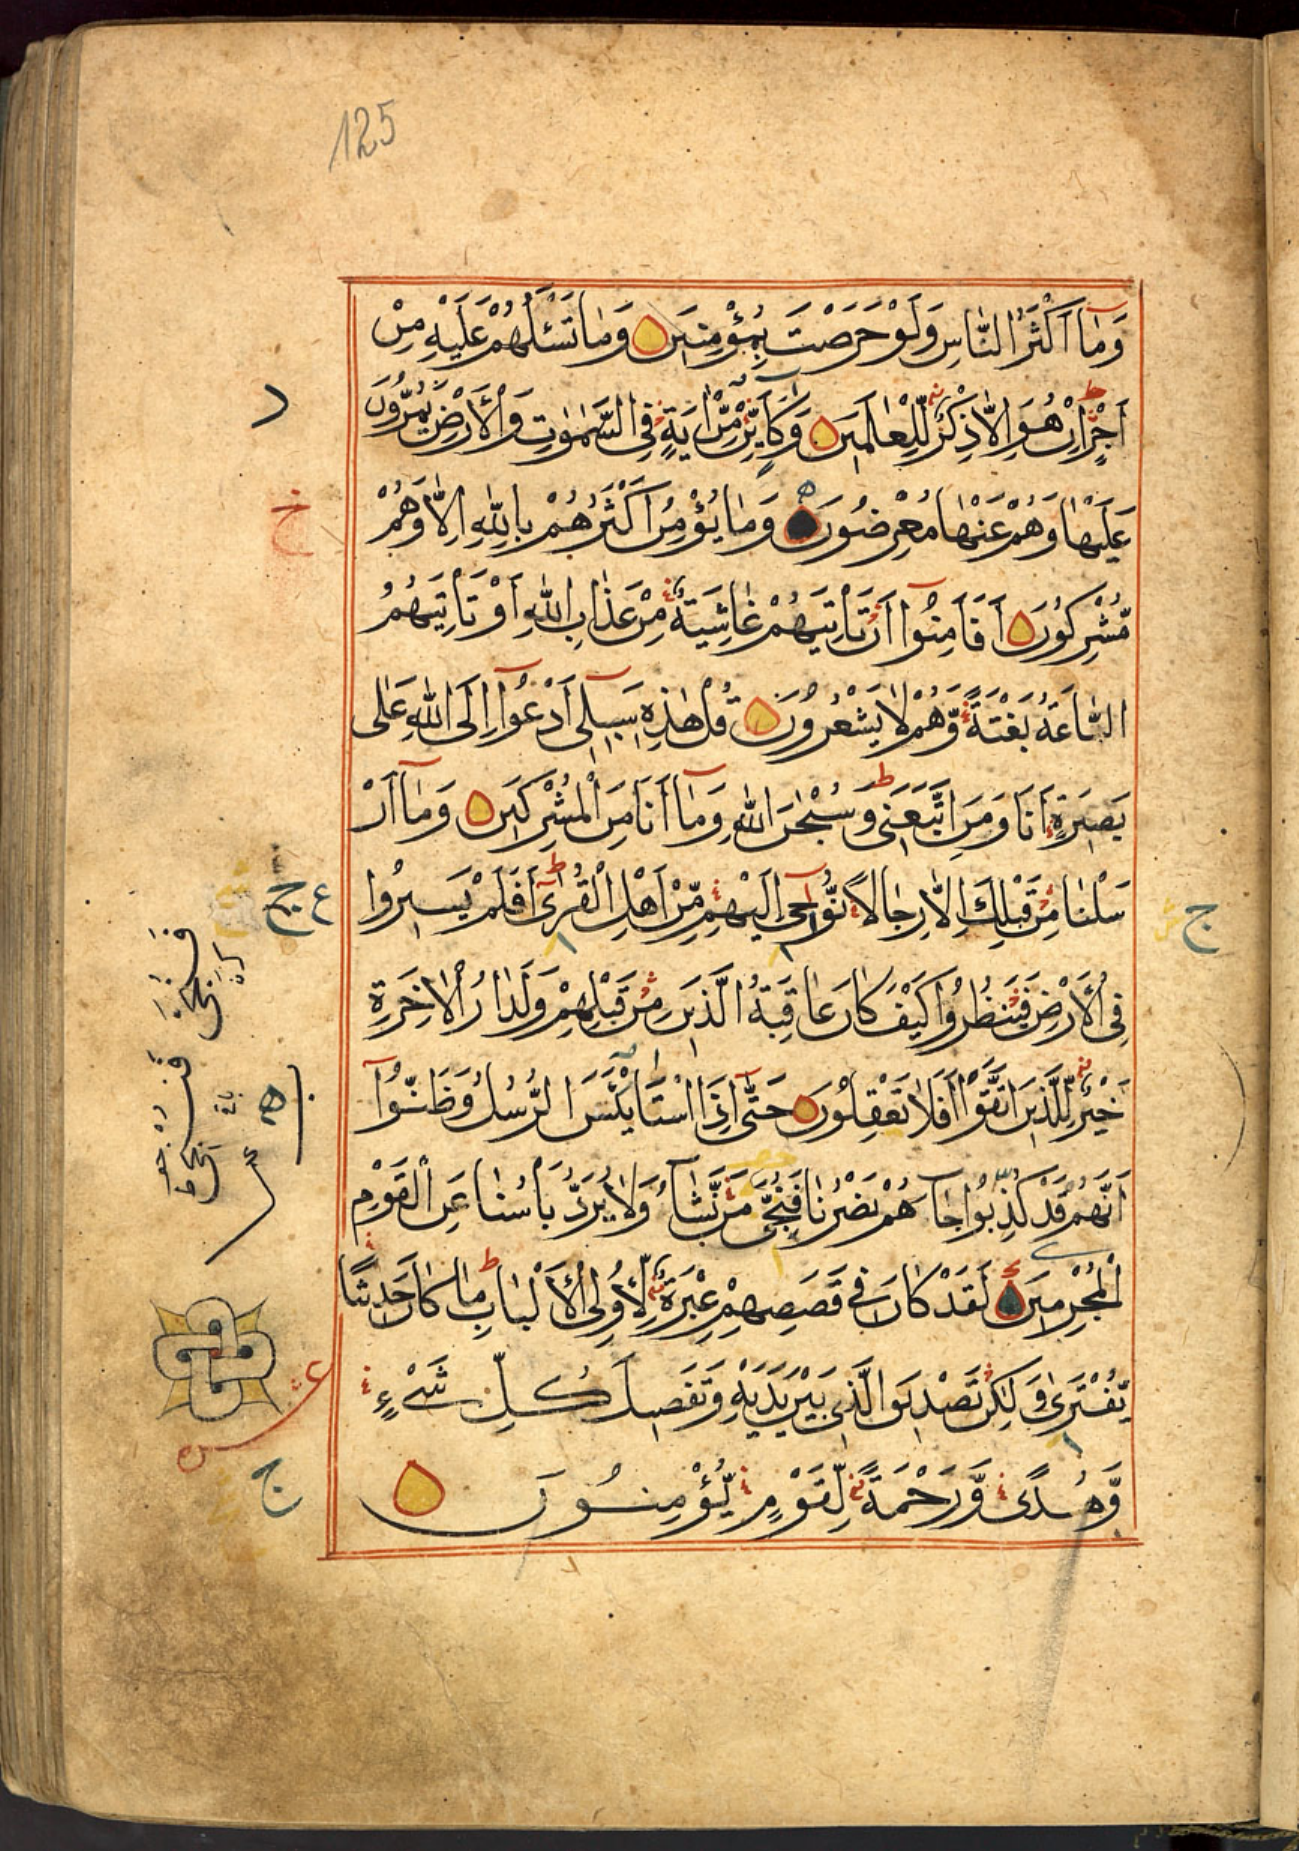 125
وَمَآ اَكْثَرُ النَّاسِ وَلَوْ حَرَصْتَ بِمُؤْمِنِيَن وَمَا تَسْئَلُهُمْ عَلَيْهِ مِنْ
اَجْرٍ اِنْ هُوَ اِلَّا ذِكْرٌ لِّلْعَالَمِينَ وَكَاَيِّنْ مِّنْ اٰيَةٍ فِى السَّمٰوٰتِ وَالْاَرْضِ يَمُرُّونَ
عَلَيْهَا وَهُمْ عَنْهَا مُعْرِضُونَ وَمَا يُؤْمِنُ اَكْثَرُهُمْ بِاللّٰهِ اِلَّا وَهُمْ
مُّشْرِكُونَ اَفَاَمِنُوٓا اَنْ تَاْتِيَهُمْ غَاشِيَةٌ مِّنْ عَذَابِ اللّٰهِ اَوْ تَاْتِيَهُمُ
السَّاعَةُ بَغْتَةً وَّهُمْ لَا يَشْعُرُونَ قُلْ هٰذِهٖ سَبِيلِىٓ اَدْعُوٓا اِلَى اللّٰهِ عَلٰى
بَصِيرَةٍ اَنَا وَمَنِ اتَّبَعَنِى وَسُبْحٰنَ اللّٰهِ وَمَآ اَنَا مِنَ الْمُشْرِكِينَ وَمَآ اَرْ
سَلْنَا مِنْ قَبْلِكَ اِلَّا رِجَالًا نُّوحِىٓ اِلَيْهِمْ مِّنْ اَهْلِ الْقُرٰىٓ اَفَلَمْ يَسِيرُوا
فِى الْاَرْضِ فَيَنْظُرُوا كَيْفَ كَانَ عَاقِبَةُ الَّذِينَ مِنْ قَبْلِهِمْ وَلَدَارُ الْاٰخِرَةِ
خَيْرٌ لِّلَّذِينَ اتَّقَوْا اَفَلَا تَعْقِلُونَ حَتّٰىٓ اِذَا اسْتَايْئَسَ الرُّسُلُ وَظَنُّوٓا
اَنَّهُمْ قَدْ كُذِبُوا جَاءَهُمْ نَصْرُنَا فَنُجِّىَ مَنْ نَّشَآءُ وَلَا يُرَدُّ بَاْسُنَا عَنِ الْقَوْمِ
الْمُجْرِمِينَ لَقَدْ كَانَ فِى قَصَصِهِمْ عِبْرَةٌ لِّاُولِى الْاَلْبَابِ مَا كَانَ حَدِيثًا
يُّفْتَرٰى وَلٰكِنْ تَصْدِيقَ الَّذِى بَيْنَ يَدَيْهِ وَتَفْصِيلَ كُلِّ شَىْءٍ
وَّهُدًى وَّرَحْمَةً لِّقَوْمٍ يُّؤْمِنُونَ
ج